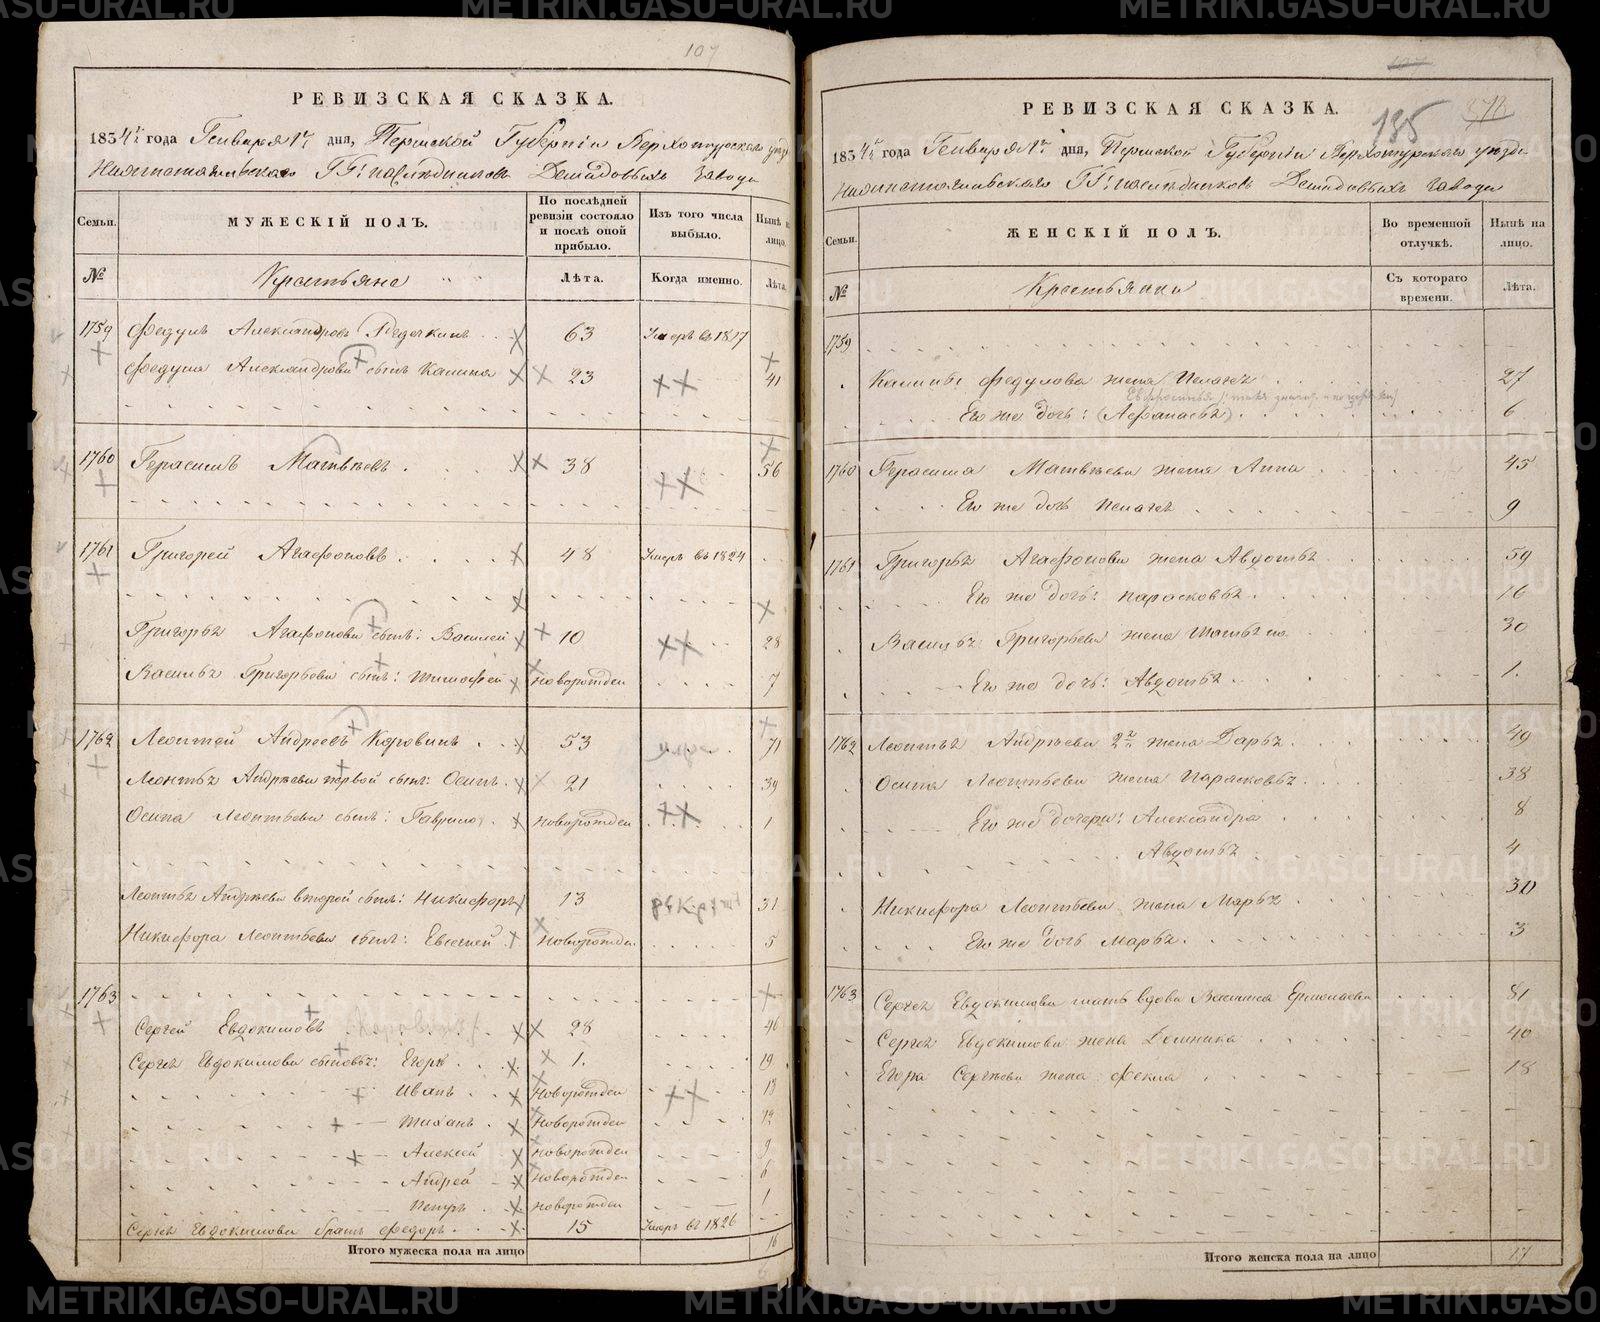 107
РЕВИЗСКАЯ СКАЗКА.
1834 года Генваря дня, Пермской Губерніи Верхотурскаго уезда
Нижнетагильскаго ГГ: наследниковъ Демидовыхъ завода
Семьи.
МУЖЕСКІЙ ПОЛЪ.
По послѣдней ревизіи состояло и послѣ оной прибыло.
Изъ того числа выбыло.
Нынѣ на лицо.
№
Крестьяне
Лѣта.
Когда именно.
Лѣта.
1759 Федулъ Александровъ 63 Умеръ въ 1817
Федула Александрова сынъ Калина 23 41
1760 Герасимъ Матвѣевъ 38 56
1761 Григорей Агафоновъ 48 Умеръ въ 1824
Григорья Агафонова сынъ: Василей 10 28
Василья Григорьева сынъ: Тимофей новорожден 7
1762 Леонтей Андреевъ Коровинъ 53 71
Леонтья Андрѣева первой сынъ: Осипъ 21 39
Осипа Леонтьева сынъ: Гаврило новорожден 1
Леонтья Андрѣева второй сынъ: Никифоръ 13 31
Никифора Леонтьева сынъ: Евсегней новорожден 5
1763
Сергей Евдокимовъ 28 46
Сергея Евдокимова сыновья: Егоръ 1. 19
Иванъ Новорожден 13
Тиханъ Новорожден 12
Алексей новорожден 9
Андрей новорожден 6
Петръ новорожден 1
Сергея Евдокимова братъ Федоръ 15 Умеръ въ 1826
Итого мужеска пола на лицо 16
РЕВИЗСКАЯ СКАЗКА.
185
1834 года Генваря дня, Пермской Губерніи Верхотурскаго уезда
Нижнетагильскаго ГГ: наследниковъ Демидовыхъ завода
Семьи.
ЖЕНСКІЙ ПОЛЪ.
Во временной отлучкѣ.
Нынѣ на лицо.
№
Крестьянки
Съ котораго времени.
Лѣта.
1759
Калины Федулова жена Пелагея 27
Его же дочь: (Афанасья) 6
1760 Герасима Матвѣева жена Анна 45
Его же дочь Пелагея 9
1761 Григорья Агафонова жена Авдотья 59
Его же дочь: Парасковья 16
Василья Григорьева жена Татьяна 30
Его же дочь: Авдотья 1.
1762 Леонтья Андрѣева 2я жена Дарья 49
Осипа Леонтьева жена Парасковья 38
Его же дочери: Александра 8
Авдотья 4
Никифора Леонтьева жена Марья 30
Его же дочь Марья 3
1763 Сергея Евдокимова мать вдова Василиса Ермолаева 81
Сергея Евдокимова жена Домника 40
Егора Сергѣева жена Фекла 18
Итого женска пола на лицо 17
METRIKI.GASO-URAL.RU